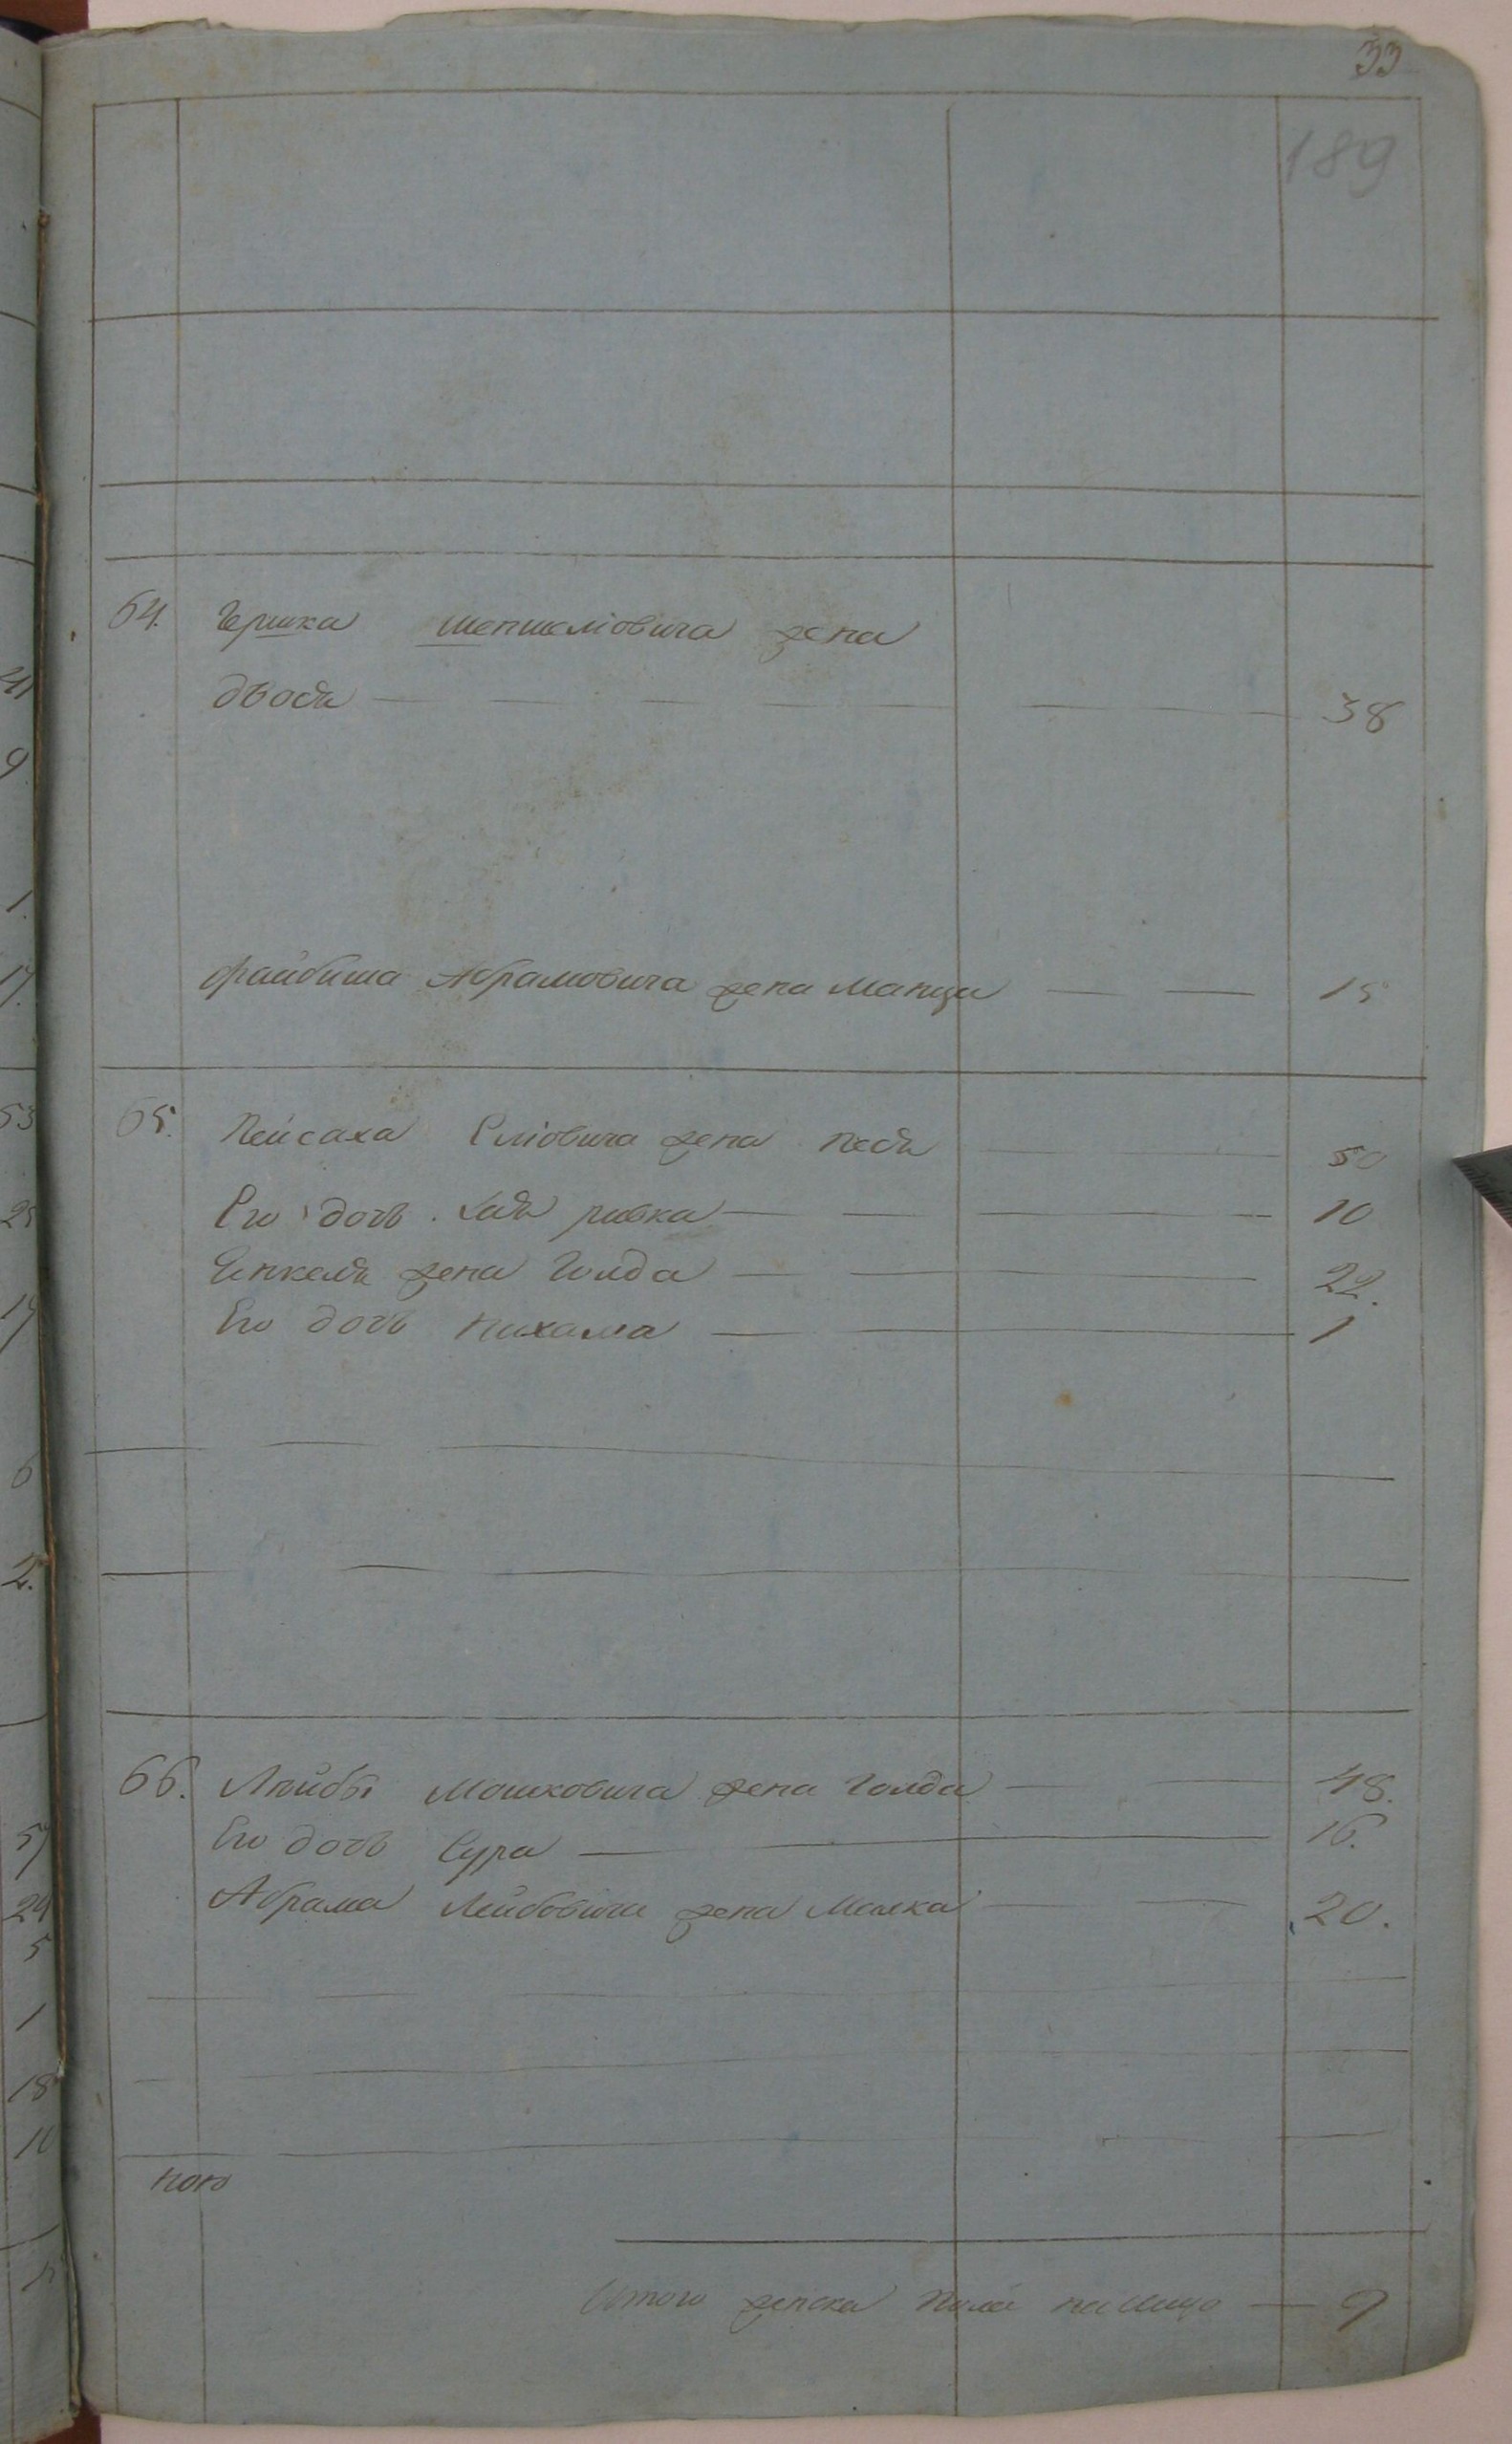 33
189
64. Гершка Шепшеліовича жена
Двося 38
Файбиша Абрамовича жена Манця 15
65. Пейсаха Еліовича жена Песя 50
Его дочь Хая ривка 10
Янкеля жена Голда 22.
Его дочь Нихама 1
66. Лейбы Мошковича жена Голда 48.
Его дочь Сура 16.
Абрама Лейбовича жена Малка 20.
Итого женска пола на лицо 9